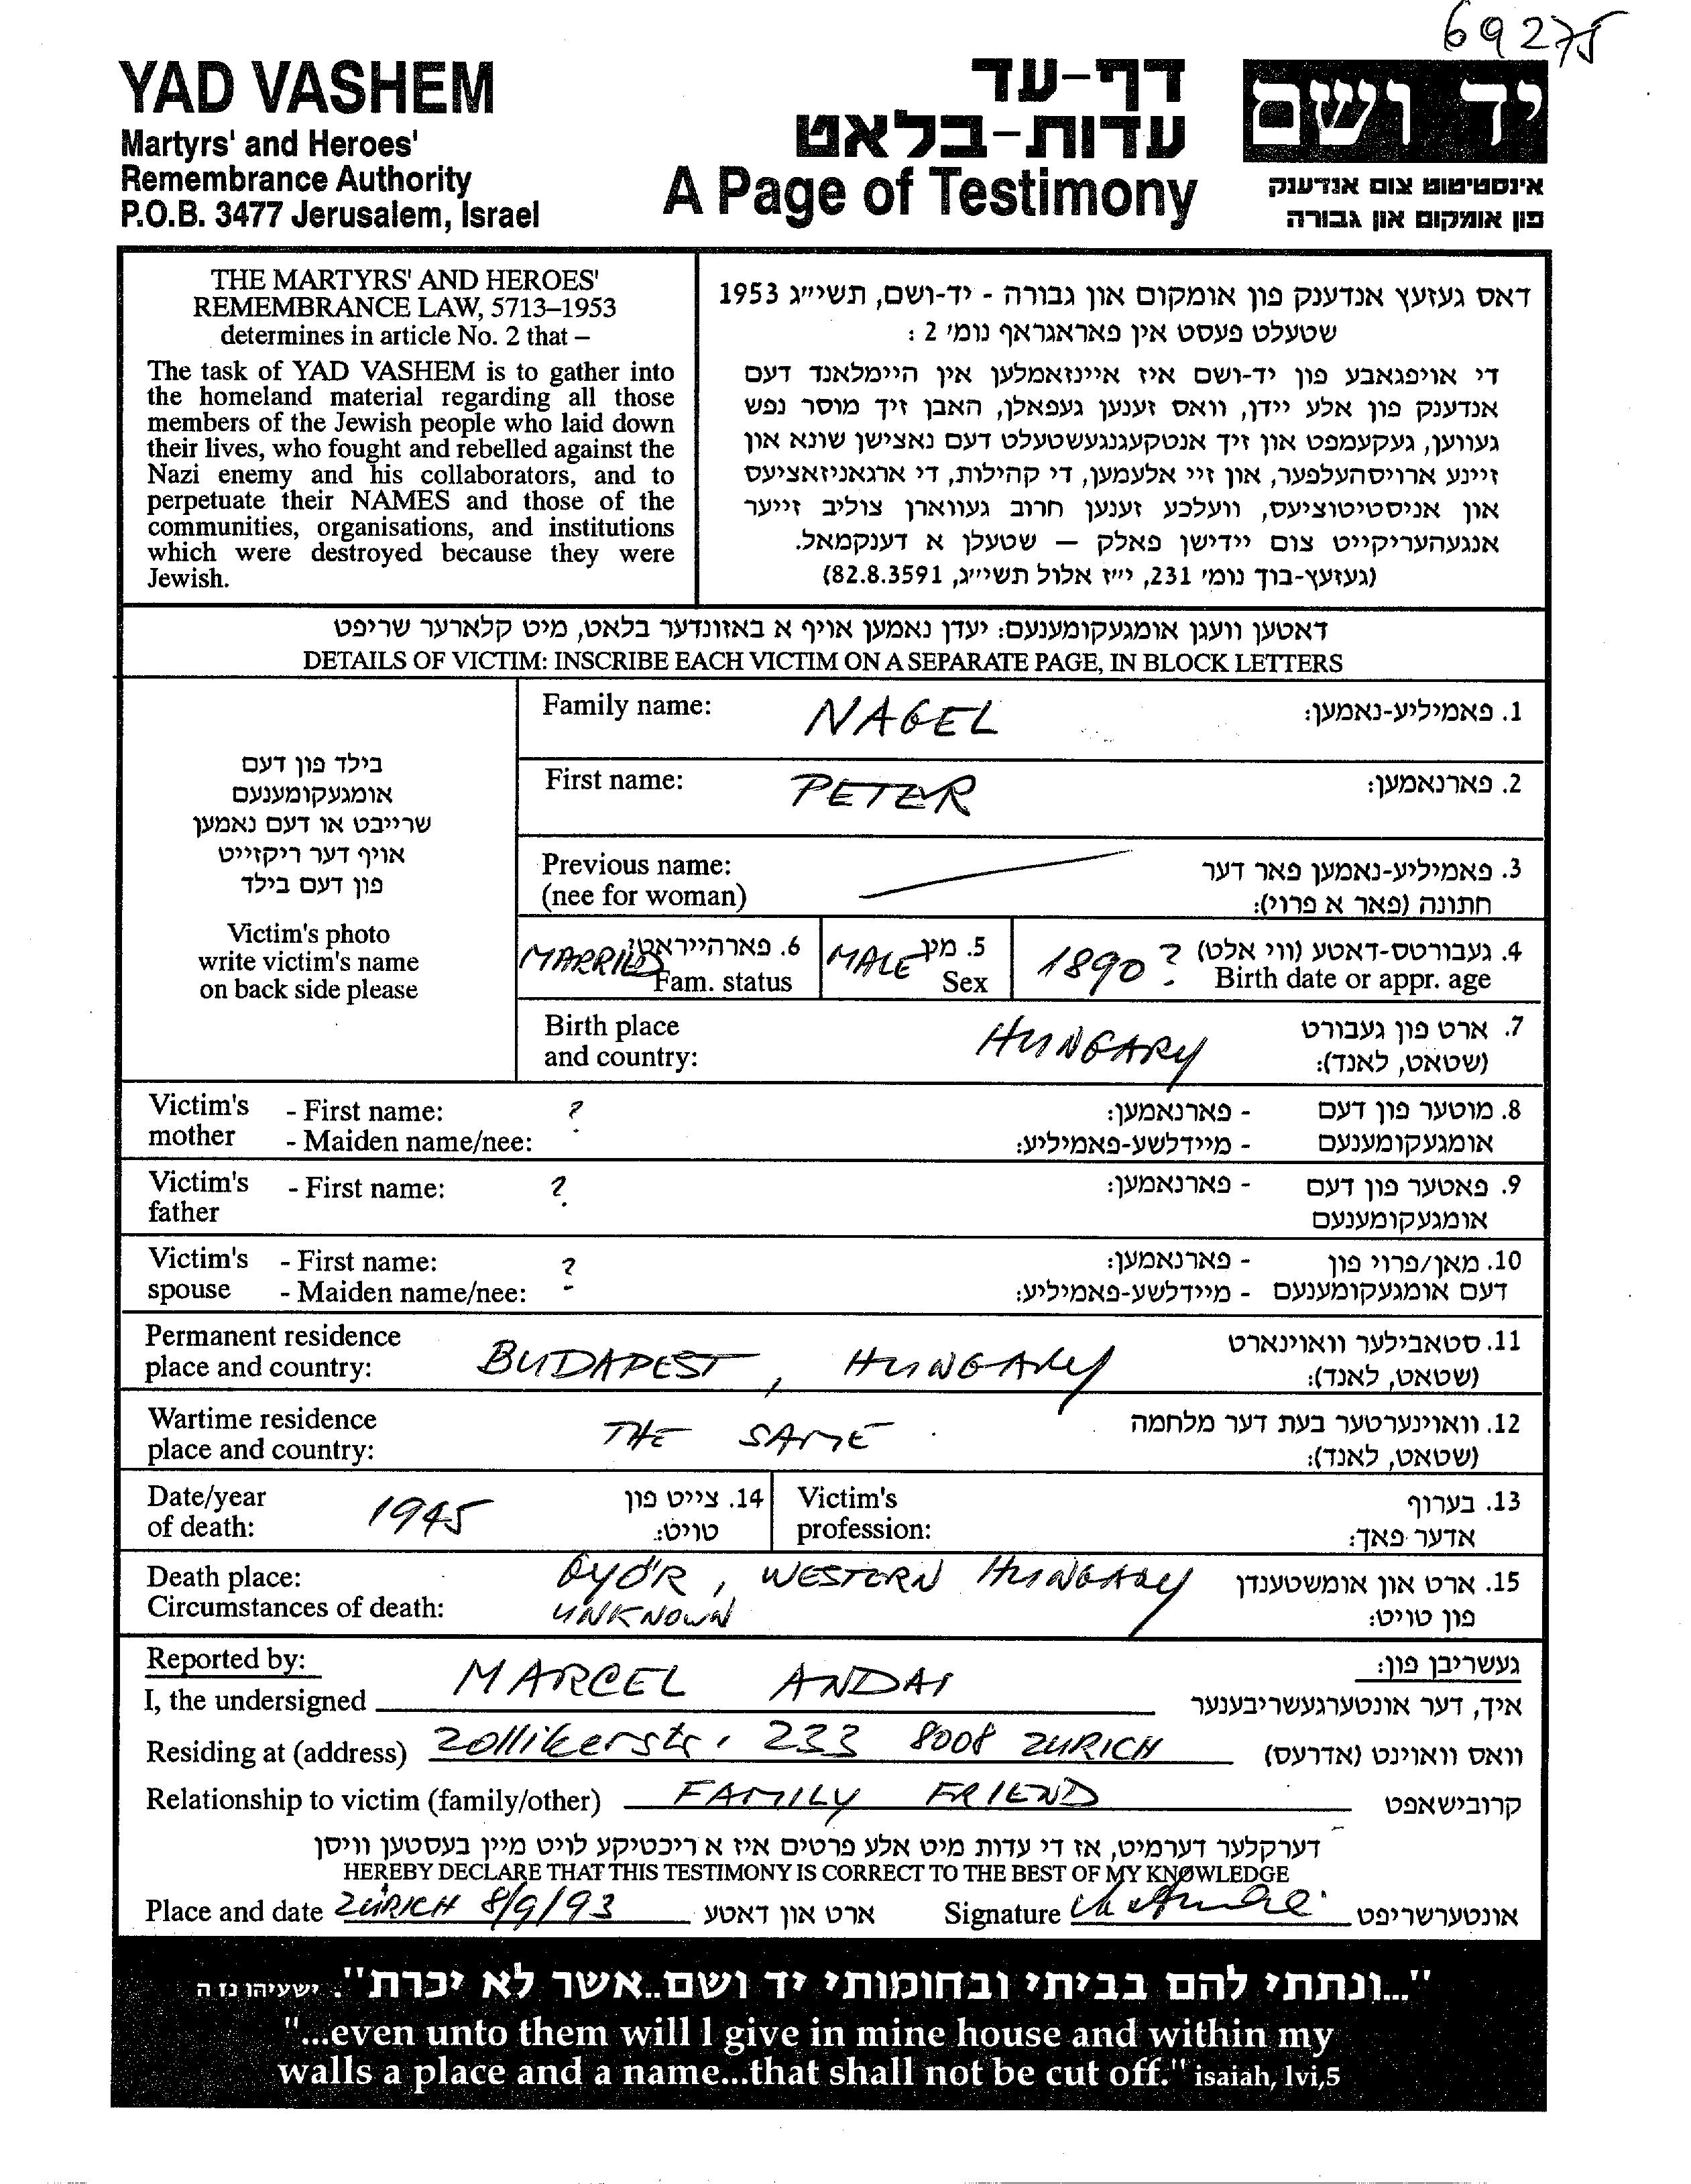 69275
YAD VASHEM
Martyrs' and Heroes'
Remembrance Authority
P.O.B. 3477 Jerusalem, Israel
דף-עד
עדות-בלאט
A Page of Testimony
יד ושם
אינסטיטוט צום אנדענק
פון אומקום און גבורה
THE MARTYRS' AND HEROES'
REMEMBRANCE LAW, 5713–1953
determines in article No. 2 that –
The task of YAD VASHEM is to gather into
the homeland material regarding all those
members of the Jewish people who laid down
their lives, who fought and rebelled against the
Nazi enemy and his collaborators, and to
perpetuate their NAMES and those of the
communities, organisations, and institutions
which were destroyed because they were
Jewish.
דאס געזעץ אנדענק פון אומקום און גבורה - יד-ושם, תשי״ג 1953
שטעלט פעסט אין פאראגראף נומ׳ 2 :
די אויפגאבע פון יד-ושם איז איינזאמלען אין היימלאנד דעם
אנדענק פון אלע יידן, וואס זענען געפאלן, האבן זיך מוסר נפש
געווען, געקעמפט און זיך אנטקעגנגעשטעלט דעם נאצישן שונא און
זיינע ארויסהעלפער, און זיי אלעמען, די קהילות, די ארגאניזאציעס
און אניסטיטוציעס, וועלכע זענען חרוב געווארן צוליב זייער
אנגעהעריקייט צום יידישן פאלק — שטעלן א דענקמאל.
(געזעץ-בוך נומ׳ 231, י״ז אלול תשי״ג, 82.8.3591)
דאטען וועגן אומגעקומענעם: יעדן נאמען אויף א באזונדער בלאט, מיט קלארער שריפט
DETAILS OF VICTIM: INSCRIBE EACH VICTIM ON A SEPARATE PAGE, IN BLOCK LETTERS
בילד פון דעם
אומגעקומענעם
שרייבט או דעם נאמען
אויף דער ריקזייט
פון דעם בילד
Victim's photo
write victim's name
on back side please
Family name: NAGEL 1. פאמיליע-נאמען:
First name: PETER 2. פארנאמען:
Previous name: 3. פאמיליע-נאמען פאר דער
(nee for woman) חתונה (פאר א פרוי):
MARRIED 6. פארהייראט: MALE 5. מין 1890 ? 4. געבורטס-דאטע (ווי אלט)
Fam. status Sex Birth date or appr. age
Birth place HUNGARY 7. ארט פון געבורט
and country: (שטאט, לאנד):
Victim's - First name: ? - פארנאמען: 8. מוטער פון דעם
mother - Maiden name/nee: - מיידלשע-פאמיליע: אומגעקומענעם
Victim's - First name: ? - פארנאמען: 9. פאטער פון דעם
father אומגעקומענעם
Victim's - First name: ? - פארנאמען: 10. מאן/פרוי פון
spouse - Maiden name/nee: - מיידלשע-פאמיליע: דעם אומגעקומענעם
Permanent residence 11. סטאבילער וווינארט
place and country: BUDAPEST, HUNGARY (שטאט, לאנד):
Wartime residence THE SAME 12. וואוינערטער בעת דער מלחמה
place and country: (שטאט, לאנד):
Date/year 1945 14. צייט פון Victim's 13. בערוף
of death: טויט: profession: אדער פאך:
Death place: GYŐR, WESTERN HUNGARY 15. ארט און אומשטענדן
Circumstances of death: UNKNOWN פון טויט:
Reported by: געשריבן פון:
I, the undersigned MARCEL ANDAI איך, דער אונטערגעשריבענער
Residing at (address) Zollikerstr. 233 8008 ZURICH וואס וואוינט (אדרעס)
Relationship to victim (family/other) FAMILY FRIEND קרובישאפט
דערקלער דערמיט, אז די עדות מיט אלע פרטים איז א ריכטיקע לויט מיין בעסטען וויסן
HEREBY DECLARE THAT THIS TESTIMONY IS CORRECT TO THE BEST OF MY KNOWLEDGE
Place and date ZÜRICH 8/9/93 ארט און דאטע Signature אונטערשריפט
"...ונתתי להם בביתי ובחומותי יד ושם..אשר לא יכרת". ישעיהו נז ה
"...even unto them will I give in mine house and within my
walls a place and a name...that shall not be cut off." isaiah, lvi,5